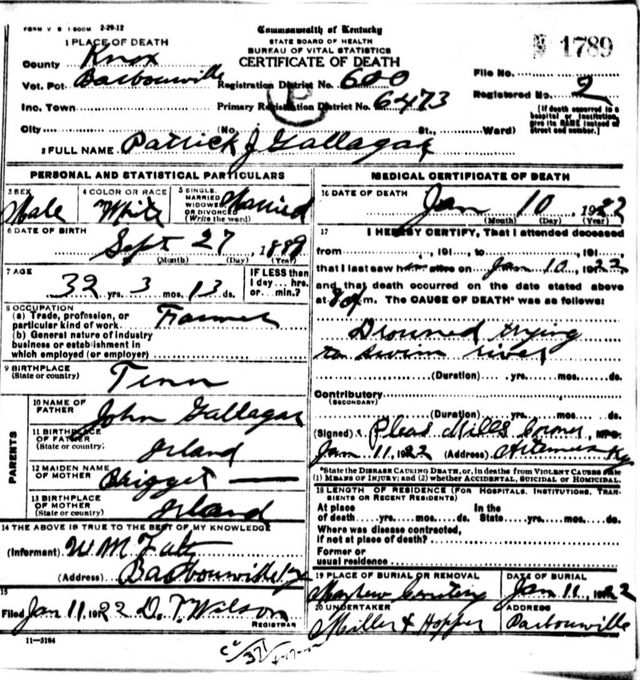 FORM V S 1 500M 2-29-12
Commonwealth of Kentucky
STATE BOARD OF HEALTH
BUREAU OF VITAL STATISTICS
CERTIFICATE OF DEATH
1789
1 PLACE OF DEATH
County Knox
Vot. Pct. Barbourville
Inc. Town
City
Registration District No. 600
Primary Registration District No. 6473
(No. St., Ward)
File No.
Registered No. 2
[If death occurred in a
hospital or institution,
give its NAME instead of
street and number.]
2 FULL NAME Patrick J Gallagar
PERSONAL AND STATISTICAL PARTICULARS
3 SEX
Male
4 COLOR OR RACE
White
5 SINGLE,
MARRIED
WIDOWED
OR DIVORCED
(Write the word)
Married
6 DATE OF BIRTH
Sept 27 1889
(Month) (Day) (Year)
7 AGE
32 yrs. 3 mos. 13 ds.
IF LESS than
1 day... hrs.
or min.?
8 OCCUPATION
(a) Trade, profession, or
particular kind of work. Farmer
(b) General nature of industry
business or establishment in
which employed (or employer)
9 BIRTHPLACE
(State or country)
Tenn
PARENTS
10 NAME OF
FATHER
John Gallagar
11 BIRTHPLACE
OF FATHER
(State or country)
Irland
12 MAIDEN NAME
OF MOTHER
Brigget
13 BIRTHPLACE
OF MOTHER
(State or country)
Irland
14 THE ABOVE IS TRUE TO THE BEST OF MY KNOWLEDGE
(Informant) W M
(Address) Barbourville Ky
15
Filed Jan 11, 1922 D. T. Wilson
REGISTRAR
11-3164
MEDICAL CERTIFICATE OF DEATH
16 DATE OF DEATH
Jan 10, 1922
(Month) (Day) (Year)
17 I HEREBY CERTIFY, That I attended deceased
from , 191 , to , 191 ,
that I last saw h alive on Jan 10, 22
and that death occurred on the date stated above
at 8 m. The CAUSE OF DEATH* was as follows:
Drouned trying
to swim river
(Duration) yrs. mos. ds.
Contributory
(SECONDARY)
(Duration) yrs. mos. ds.
(Signed) Pleas Mills Corner, M.D.
Jan. 11, 1922 (Address) Artemus Ky
*State the DISEASE CAUSING DEATH, or, in deaths from VIOLENT CAUSES state
(1) MEANS OF INJURY; and (2) whether ACCIDENTAL, SUICIDAL or HOMICIDAL.
18 LENGTH OF RESIDENCE (FOR HOSPITALS, INSTITUTIONS, TRAN-
SIENTS OR RECENT RESIDENTS)
At place In the
of death yrs. mos. ds. State yrs. mos. ds.
Where was disease contracted,
if not at place of death?
Former or
usual residence
19 PLACE OF BURIAL OR REMOVAL
DATE OF BURIAL
Jan 11, 1922
20 UNDERTAKER
Miller & Hopper
ADDRESS
Barbourville